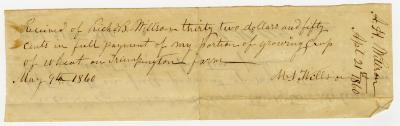 Received of Richd B. Willson thirty two dollars and fifty
cents in full payment of my portion of growing Crop
of Wheat on Trumpington farm
May 9th 1860 M. S. Willson
A. H. Willson
Apl 21st
1860